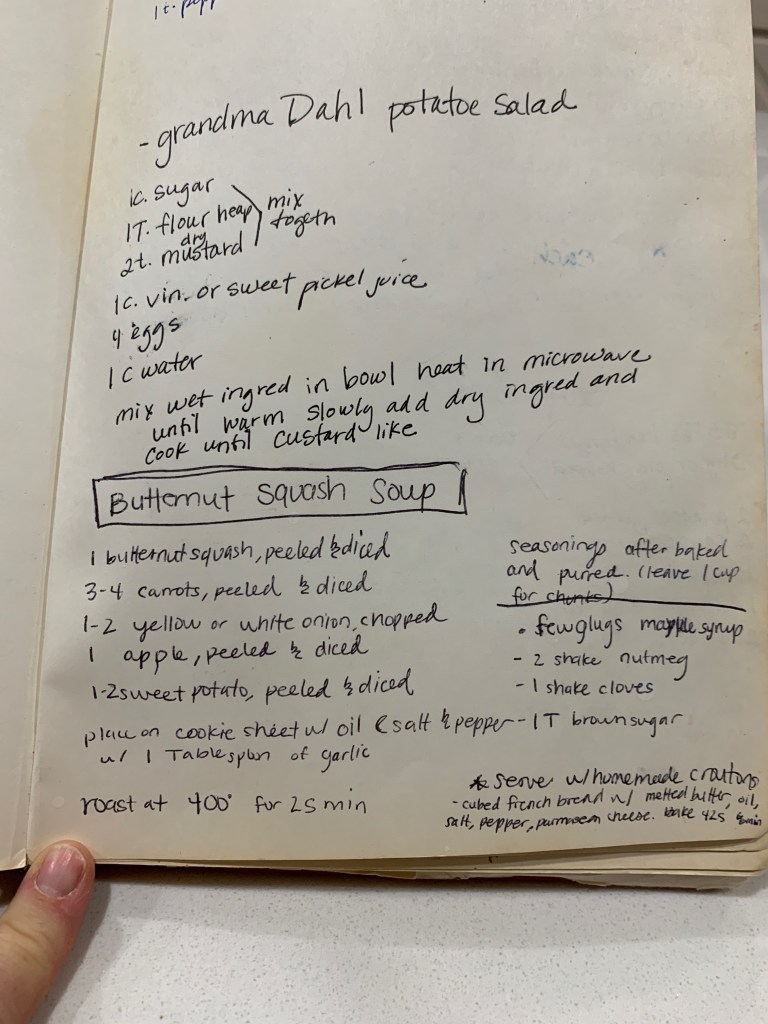 1t. pepp
- grandma Dahl potatoe salad
1c. sugar
1T. flour heap
2t. dry mustard
mix
togeth
1c. vin. or sweet pickel juice
4 eggs
1 c water
mix wet ingred in bowl heat in microwave
until warm slowly add dry ingred and
cook until custard like
Butternut Squash Soup
1 butternut squash, peeled & diced
3-4 carrots, peeled & diced
1-2 yellow or white onion, chopped
1 apple, peeled & diced
1-2 sweet potato, peeled & diced
place on cookie sheet w/ oil & salt & pepper
w/ 1 Tablespoon of garlic
roast at 400° for 25 min
seasonings after baked
and purred. (leave 1 cup
for chunks)
• few glugs maple syrup
- 2 shake nutmeg
- 1 shake cloves
- 1T brown sugar
* serve w/ homemade croutons
- cubed french bread w/ melted butter, oil,
salt, pepper, parmasem cheese. bake 425 min